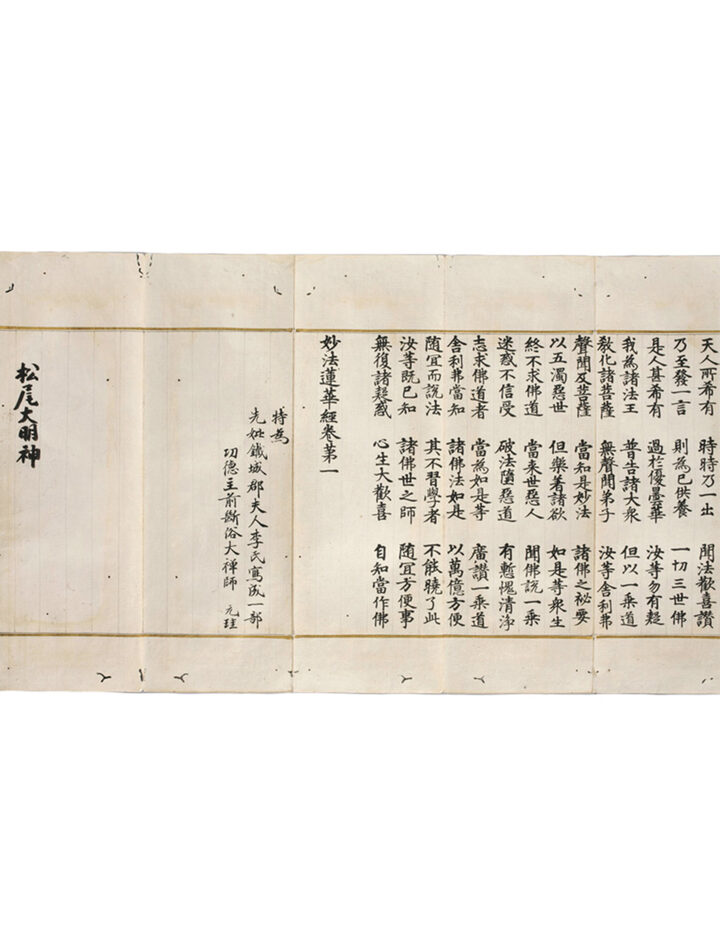 天人所希有 時時乃一出 聞法歡喜讃
乃至發一言 則為已供養 一切三世佛
是人甚希有 過於優曇華 汝等勿有疑
我為諸法王 普告諸大衆 但以一乘道
敎化諸菩薩 無聲聞弟子 汝等舍利弗
聲聞及菩薩 當知是妙法 諸佛之祕要
以五濁惡世 但樂着諸欲 如是等衆生
終不求佛道 當来世惡人 聞佛說一乘
迷惑不信受 破法墮惡道 有慙愧清浄
志求佛道者 當為如是等 廣讃一乘道
舍利弗當知 諸佛法如是 以萬億方便
随冝而說法 其不習學者 不能曉了此
汝等旣已知 諸佛世之師 随冝方便事
無復諸疑惑 心生大歡喜 自知當作佛
妙法蓮華經卷苐一
特為
先妣鐵城郡夫人李氏寫成一部
功德主前斷俗大禅師 元珪
松尾大明神